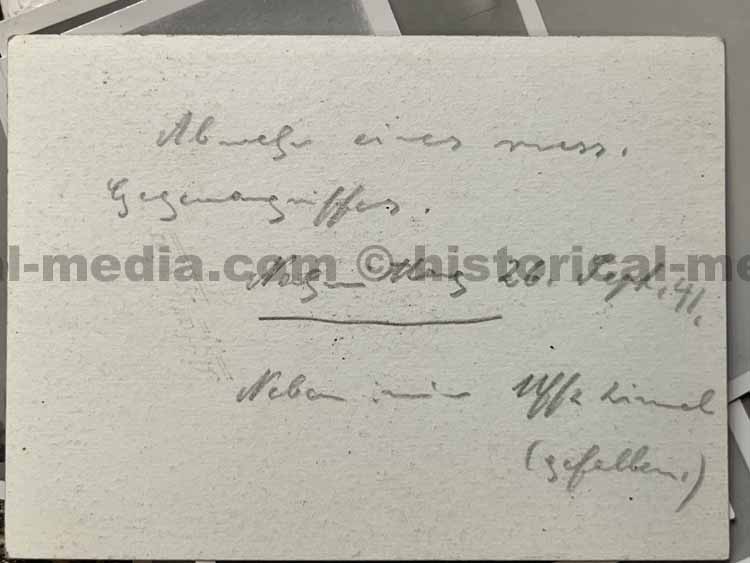 Abwehr eines russ.
Gegenangriffes.
al-media.com ©historical-me
26. Sept. 41.
Neben mir Uffz
(gefallen.)